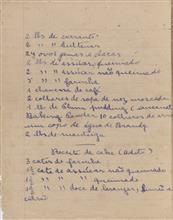 2 lbs de currants
6 " " sultanas
24 ovos gemas e claras
2 lbs de assucar queimado
2 " " assucar não queimado
3 " " farinha
1 chavena de café
2 colheres de sopa de noz moscada
1 lb de Plum pudding
Baking Powder 10 colheres de
um copo de agua de Brandy
2 lbs de manteiga
Receita de cake
3 catis de farinha
cate de assucar não queimado
" " queimado
" " doce de laranja,
cidrão